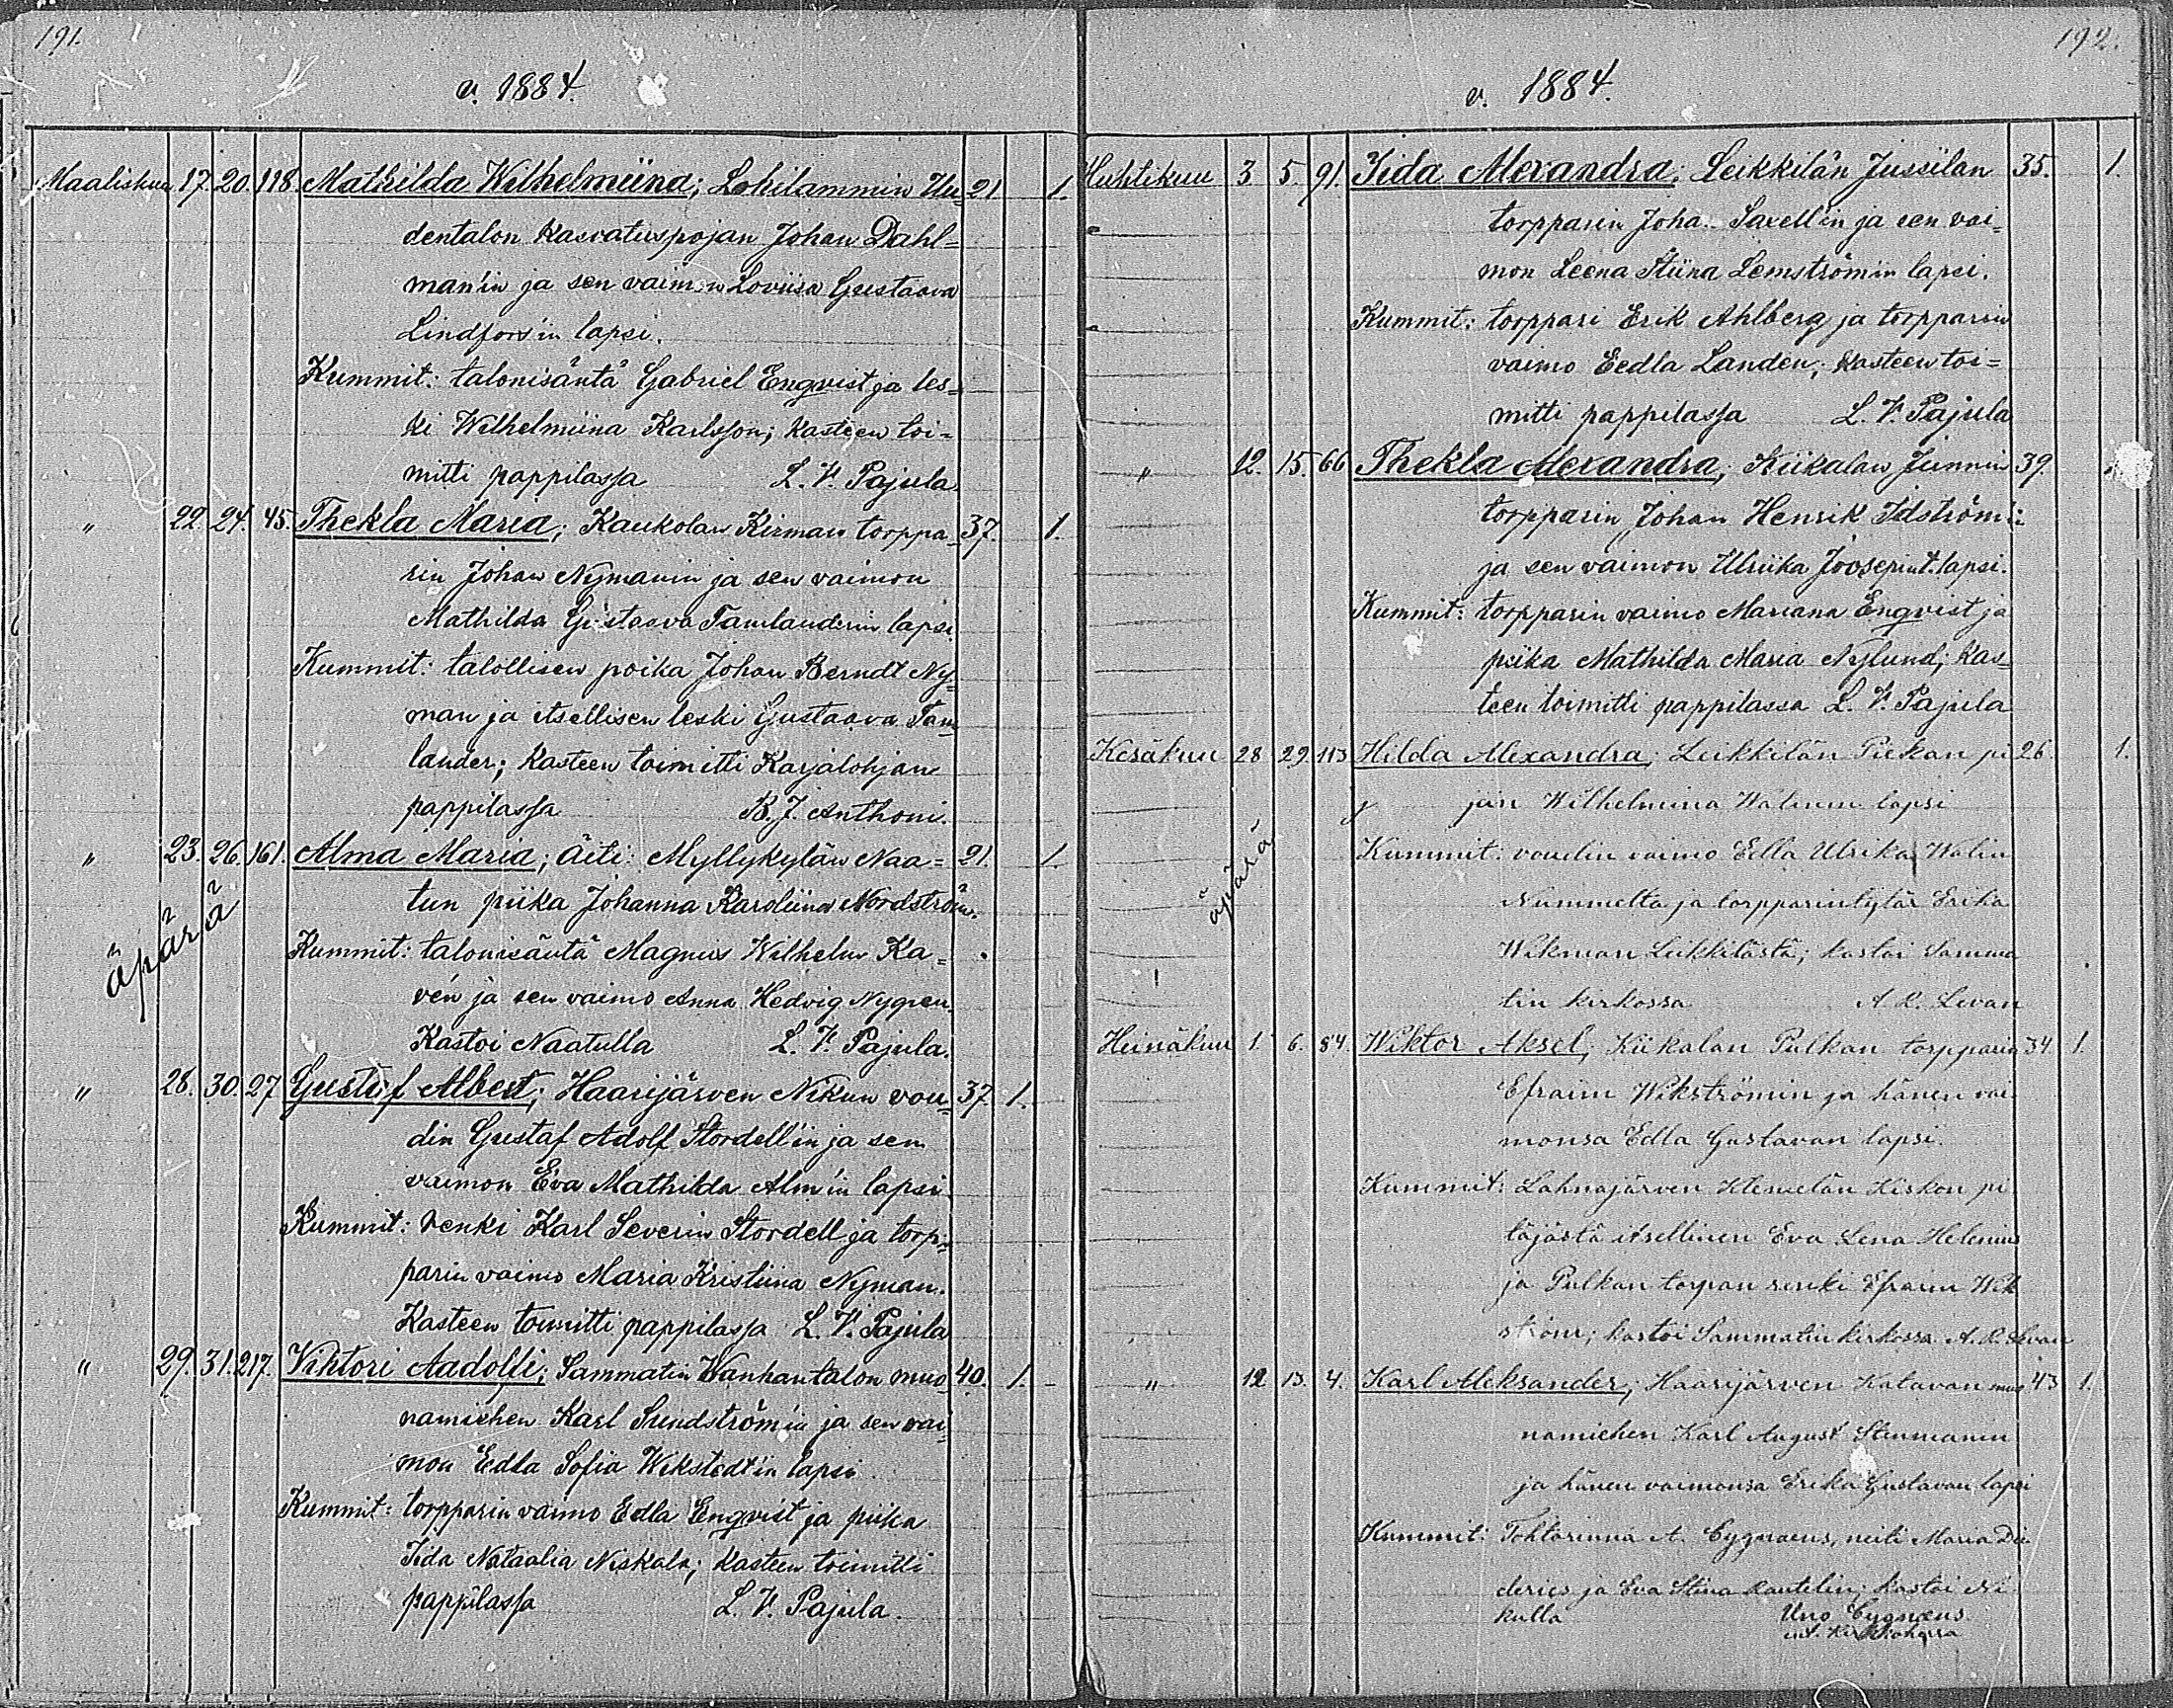 191.
v. 1884.
Maaliskuu 17. 20. 118. Mathilda Wilhelmiina; Lohilammin Uu- 21. 1.
dentalon kasvatuspojan Johan Dahl=
man'in ja sen vaimon Loviisa Gustaava
Lindfors'in lapsi.
Kummit: talonisäntä Gabriel Engvist ja les=
ki Wilhelmiina Karlsson; kasteen toi=
mitti pappilassa L. V. Pajula.
" 22. 24. 45. Thekla Maria; Kaukolan Kirman torppa- 37. 1.
rin Johan Nymanin ja sen vaimon
Mathilda Gustaava Tamlanderin lapsi.
Kummit: talollisen poika Johan Berndt Ny=
man ja itsellisen leski Gustaava Tam=
lander; kasteen toimitti Karjalohjan
pappilassa K. J. Anthoni.
" 23. 26. 161. Alma Maria; Äiti: Myllykylän Naa= 21. 1.
äpärä
tun piika Johanna Karoliina Nordström.
Kummit: talonisäntä Magnus Wilhelm Ka=
vén ja sen vaimo Anna Hedvig Nygren.
Kastoi Naatulla L. V. Pajula.
" 28. 30. 27 Gustaf Albert; Haarijärven Nikun vou= 37. 1.
din Gustaf Adolf Stordell'in ja sen
vaimon Eva Mathilda Alm'in lapsi.
Kummit: renki Karl Severin Stordell ja torp=
parin vaimo Maria Kristiina Nyman.
Kasteen toimitti pappilassa L. V. Pajula
" 29. 31. 217. Vihtori Aadolfi; Sammatin Wanhantalon muo- 40. 1.
namiehen Karl Sundström'in ja sen vai=
mon Edla Sofia Wikstedt'in lapsi
Kummit: torpparin vaimo Edla Engvist ja piika
Iida Nataalia Niskala; kasteen toimitti
pappilassa L. V. Pajula.
192.
v. 1884.
Huhtikuu 3 5. 91. Iida Alexandra; Leikkilän Jussilan 35. 1.
torpparin Joha. Saxell'in ja sen vai=
mon Leena Stiina Lemströmin lapsi.
Kummit: torppari Erik Ahlberg ja torpparin
vaimo Eedla Landen; kasteen toi=
mitti pappilassa L. V. Pajula
" 12. 15. 66 Thekla Alexandra; Kiikalan Junnin 39.
torpparin Johan Henrik Idströmi:
ja sen vaimon Ulriika Joosepint. lapsi.
Kummit: torpparin vaimo Mariana Engvist ja
piika Mathilda Maria Nylund; kas=
teen toimitti pappilassa L. V. Pajula
Kesäkuu 28 29. 113 Hilda Alexandra; Leikkilän Piekan pi 26. 1.
jan Wilhelmina Walinin lapsi
äpärä
Kummit: voudin vaimo Edla Ulrika Walin
Nummelta ja torpparintytär Erika
Wikman Leikkilästä; kastoi Samma
tin kirkossa A. R. Levan
Heinäkuu 1. 6. 84. Wiktor Aksel; Kiikalan Pulkan torpparin 34 1.
Efraim Wikströmin ja hänen vai
monsa Edla Gustavan lapsi.
Kummit: Lahnajärven Klemelän Kiskon pi
täjästä itsellinen Eva Lena Helenius
ja Pulkan torpan renki Efraim Wik
ström; kastoi Sammatin kirkossa A. R. Levan
" 12 13. 4. Karl Aleksander; Haarijärven Katavan muo 43 1.
namiehen Karl August Stenmanin
ja hänen vaimonsa Erika Gustavan lapsi
Kummit: Tohtorinna A. Cygnaeus, neiti Maria Di
derics ja Eva Stina Rautelin; kastoi Ni
kulla Uno Cygnaeus